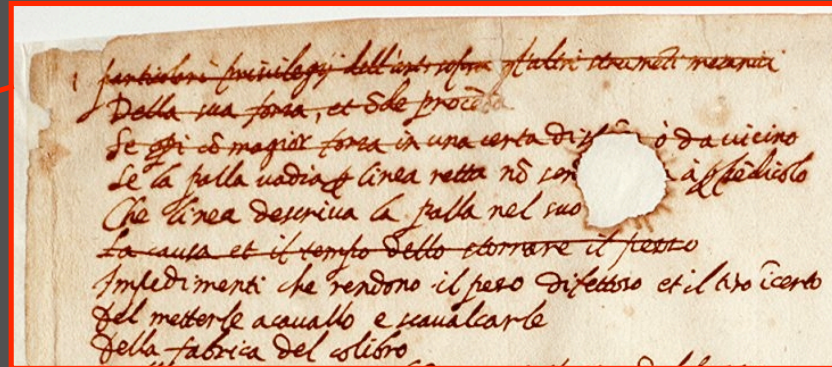 particolari privilegij dell'art. sopra gl'altri strumeti mecanici
Della sua forza, et ōde proceda
Se opi cō magior forza in una certa dist ò da vicino
Se la palla vadia p linea retta nō sen à ppēdicolo
Che linea descriva la palla nel suo
La causa et il tempo dello stornare il pezzo
Impedimenti che rendono il pezo difettoso et il tiro īcerto
Del metterle acavallo e scavalcarle
Della fabrica del colibro